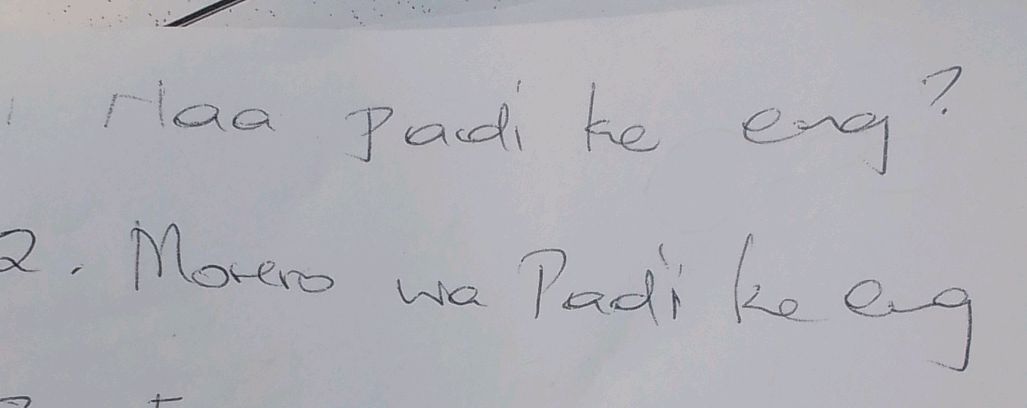 Haa padi ke eng?
2. Morero wa Padi ke eng